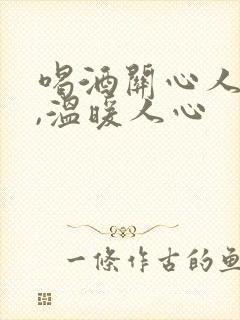 喝酒關心人
,溫暖人心
一條作古的魚